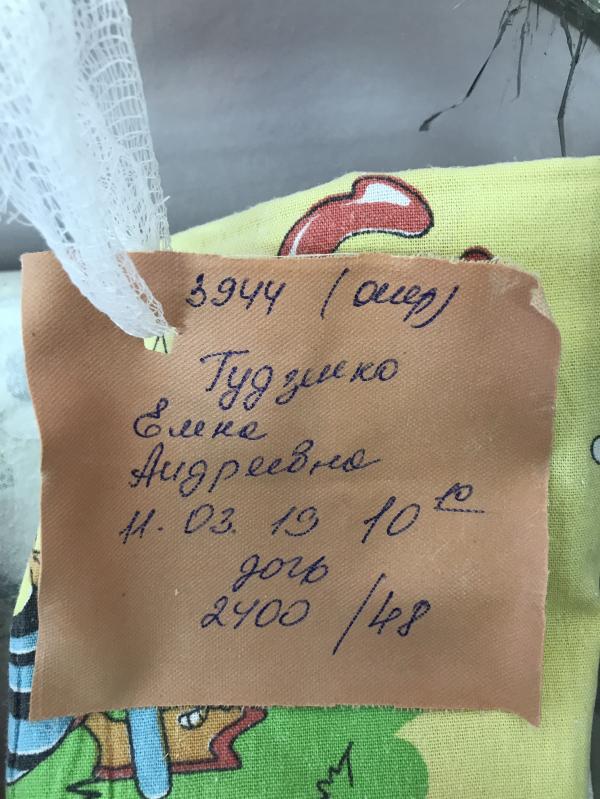 3944 (опер)
Гудзенко
Елена
Андреевна
11. 03. 19 10 10
дочь
2400 /48